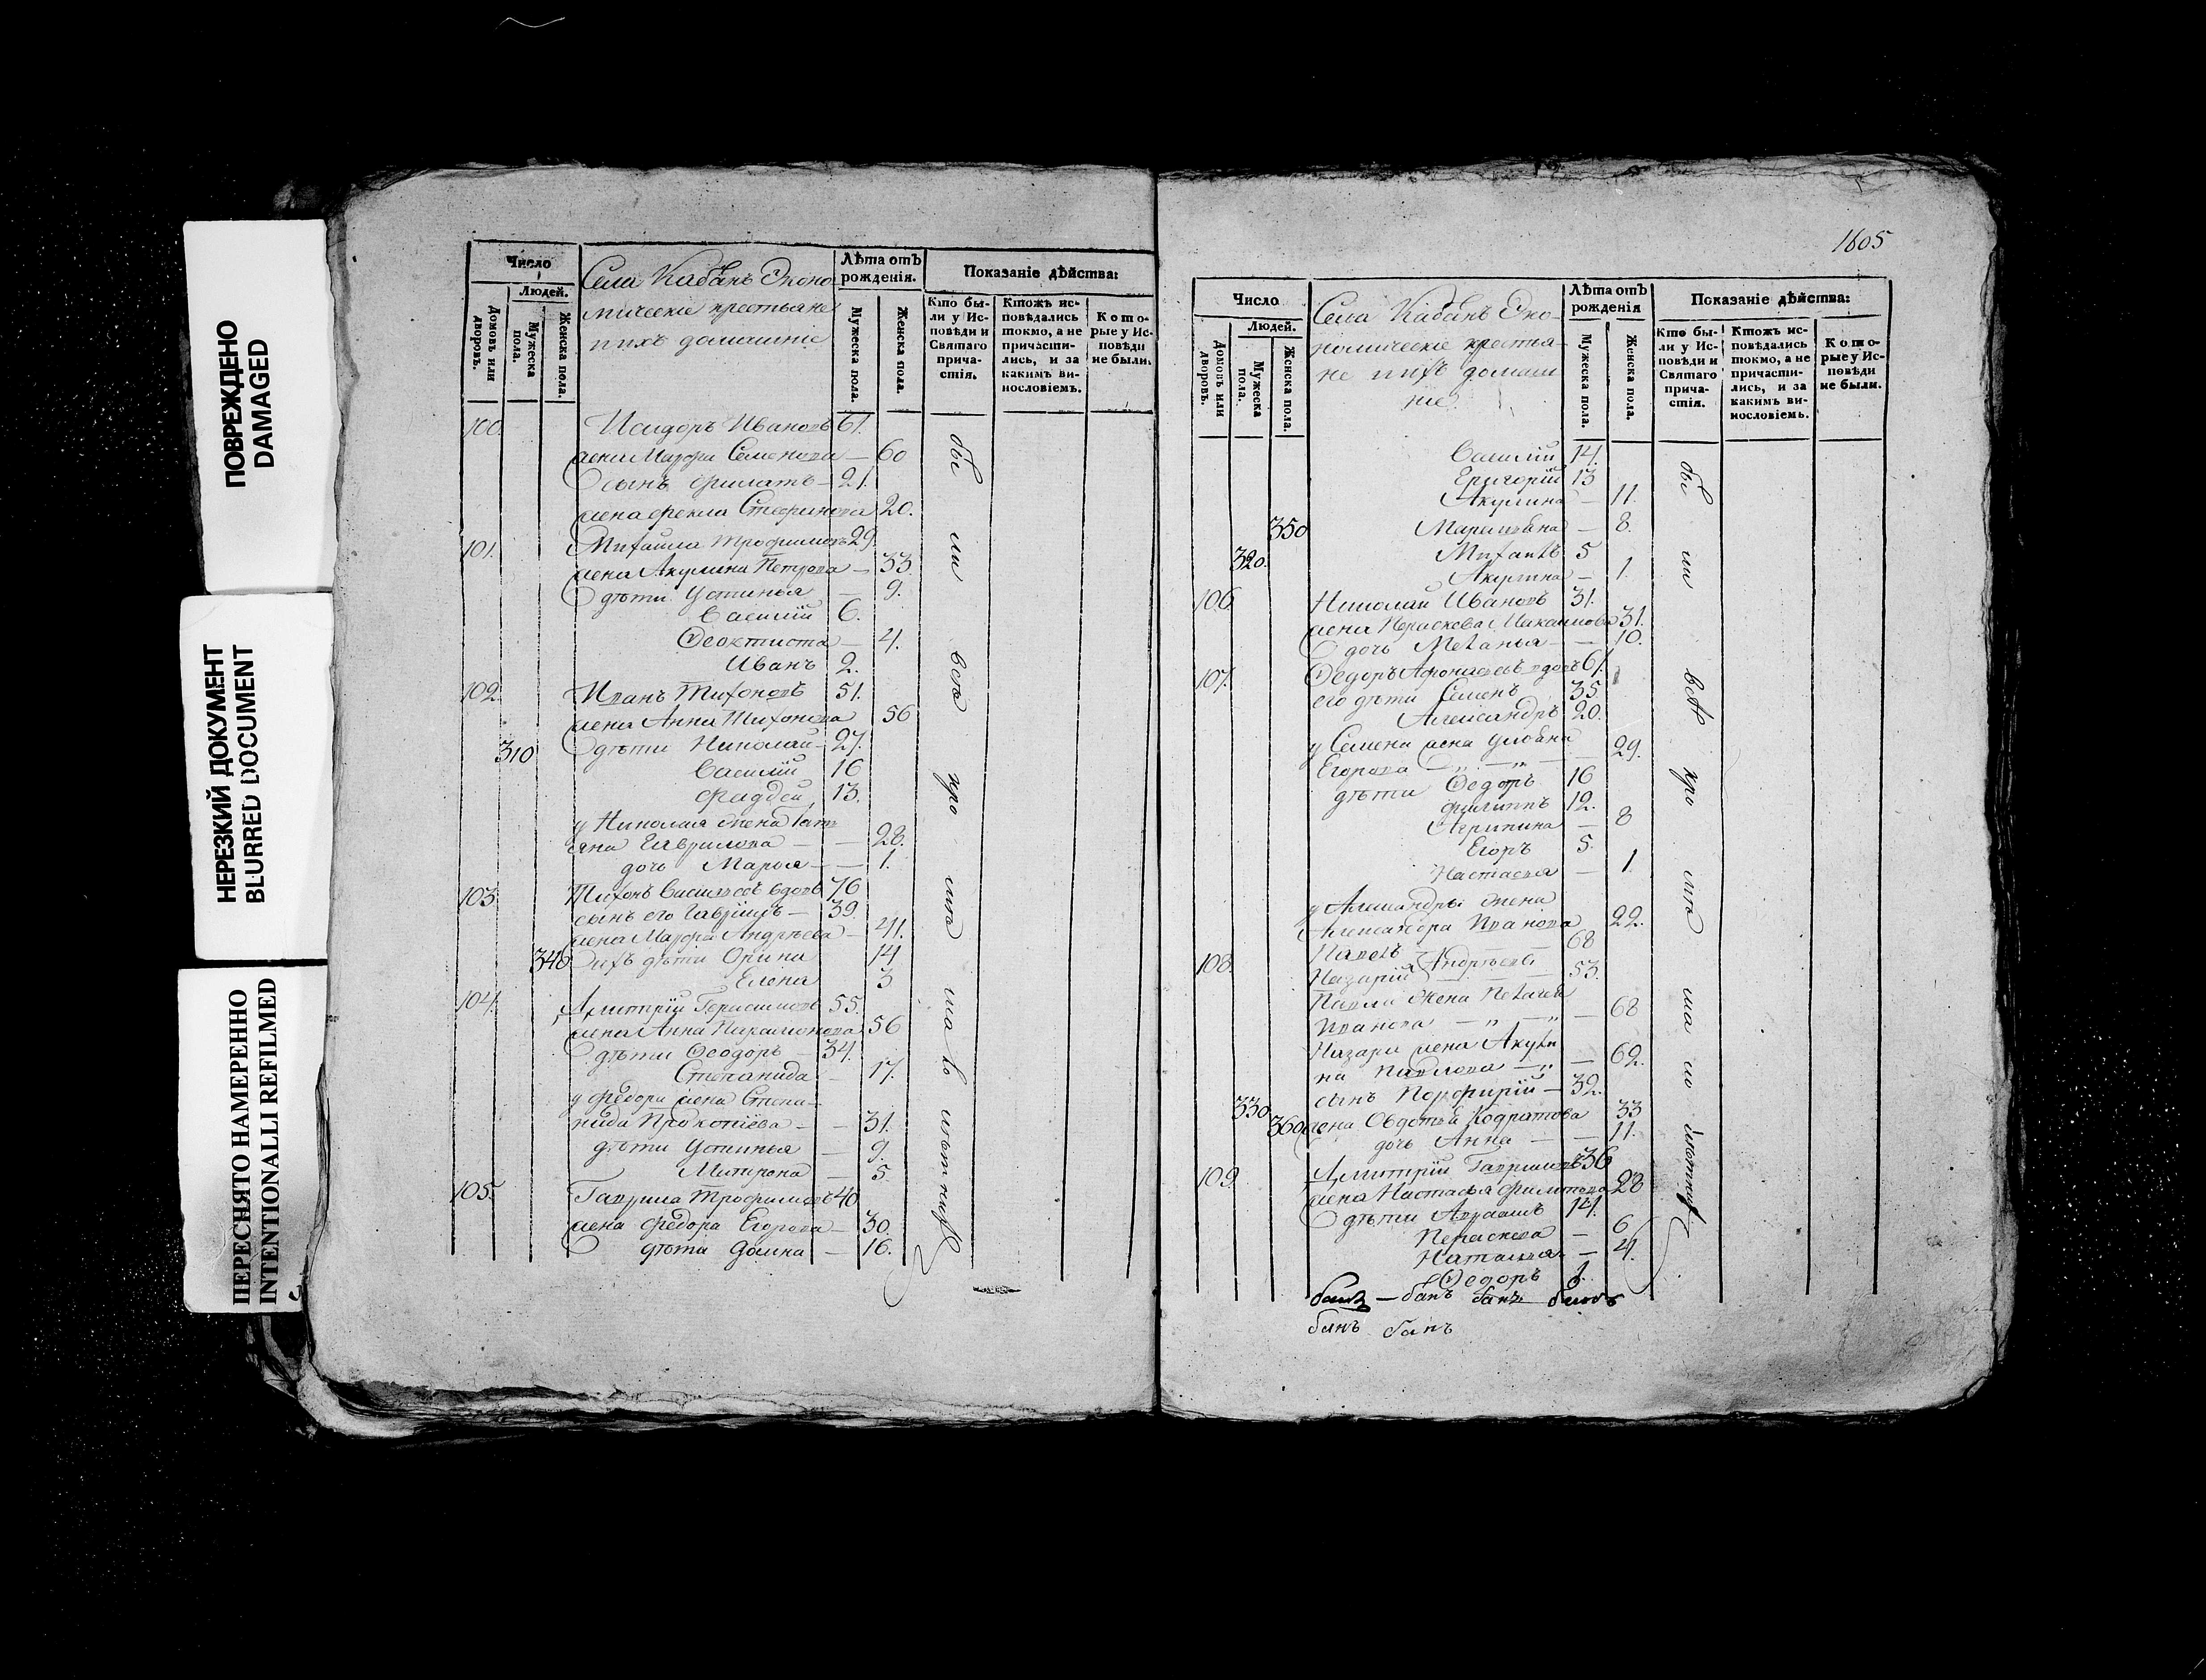 ПОВРЕЖДЕНО
DAMAGED
НЕРЕЗКИЙ ДОКУМЕНТ
BLURRED DOCUMENT
ПЕРЕСНЯТО НАМЕРЕННО
INTENTIONALLI REFILMED
Число
Людей.
Домовъ или дворовъ.
Мужеска пола.
Женска пола.
Села Кабанъ Эконо-
мическіе крестьяне
ихъ домашніе
Лѣта отъ
рожденія.
Мужеска пола.
Женска пола.
Показаніе дѣйства:
Кто бы-
ли у Ис-
повѣди и
Святаго
прича-
стія.
Ктожъ ис-
повѣдались
токмо, а не
причасти-
лись, и за
какимъ ви-
нословіемъ.
Кото-
рые у Ис-
повѣди
не были.
100. Исидоръ Ивановъ 61.
жена Марфа Семенова — 60
сынъ Филатъ — 21.
жена Фекла Стефанова 20.
101. Михайла Трофимовъ 29.
жена Акулина Петрова — 33
дѣти Устинья — 9.
Василій 6.
Ѳеоктиста — 4.
Иванъ 2.
102. Иванъ Тихоновъ 51.
жена Анна Тихонова 56
310 дѣти Николай — 27.
Василій 16
Фаддей 13.
у Николая жена Тать
яна Гаврилова — — 28.
дочь Марья — — 1.
103. Тихонъ Васильевъ вдовъ 76
сынъ его Гаврилъ — 39.
жена Марфа Андрѣева — 41.
340 ихъ дѣти Орина 14
Елена 3
104. Дмитрій Герасимовъ 55.
жена Анна Парамонова 56
дѣти Ѳеодоръ — 34.
Степанида — 17.
у Федора жена Степа-
нида Прокопіева — — 31.
дѣти Устинья — 9.
Митрона — 5
105. Гаврила Трофимовъ 40
жена Федора Егорова — 30.
дѣти Домна — 16.
бы
ли
всѣ
1605
Число
Людей.
Домовъ или дворовъ.
Мужеска пола.
Женска пола.
Села Кабанъ Эко-
номическіе крестья-
не ихъ домаш
ніе.
Лѣта отъ
рожденія
Мужеска пола.
Женска пола.
Показаніе дѣйства:
Кто бы-
ли у Ис-
повѣди и
Святаго
прича-
стія.
Ктожъ ис-
повѣдались
токмо, а не
причасти-
лись, и за
какимъ ви-
нословіемъ.
Кото-
рые у Ис-
повѣди
не были.
Василій 14.
Григорій 13
Акулина — 11.
350 — 8.
320. 5
Акулина — 1.
106. Николай Ивановъ 31.
жена Пераскева Максимова 31.
дочь Меланья — 10.
107. Ѳедоръ Афонасьевъ вдовъ 61.
его дѣти Семенъ 35
Александръ 20.
у Семена жена Ульяна
Егорова — „ — „ — 29.
дѣти Ѳедоръ 16
Филиппъ 12.
Агрипина — 8
Егоръ 5.
Настасья — 1.
у Александра жена
Александра Иванова 22.
108. Павелъ Андрѣевъ 68
Назарій — 53.
Павла жена Пелагея
Иванова — „ — „ — 68
Назара жена Акули
на Павлова — „ — 62.
330 сынъ Порфирій — 32.
360 жена Овдотья Кодратова 33
дочь Анна — — 11.
109. Дмитрій Гавриловъ 36
жена Настасья Филипова 28
дѣти Абрамъ 14.
Пераскева — 6
Наталья — 4.
Ѳедоръ 1.
бы
ли
всѣ
банъ
банъ банъ